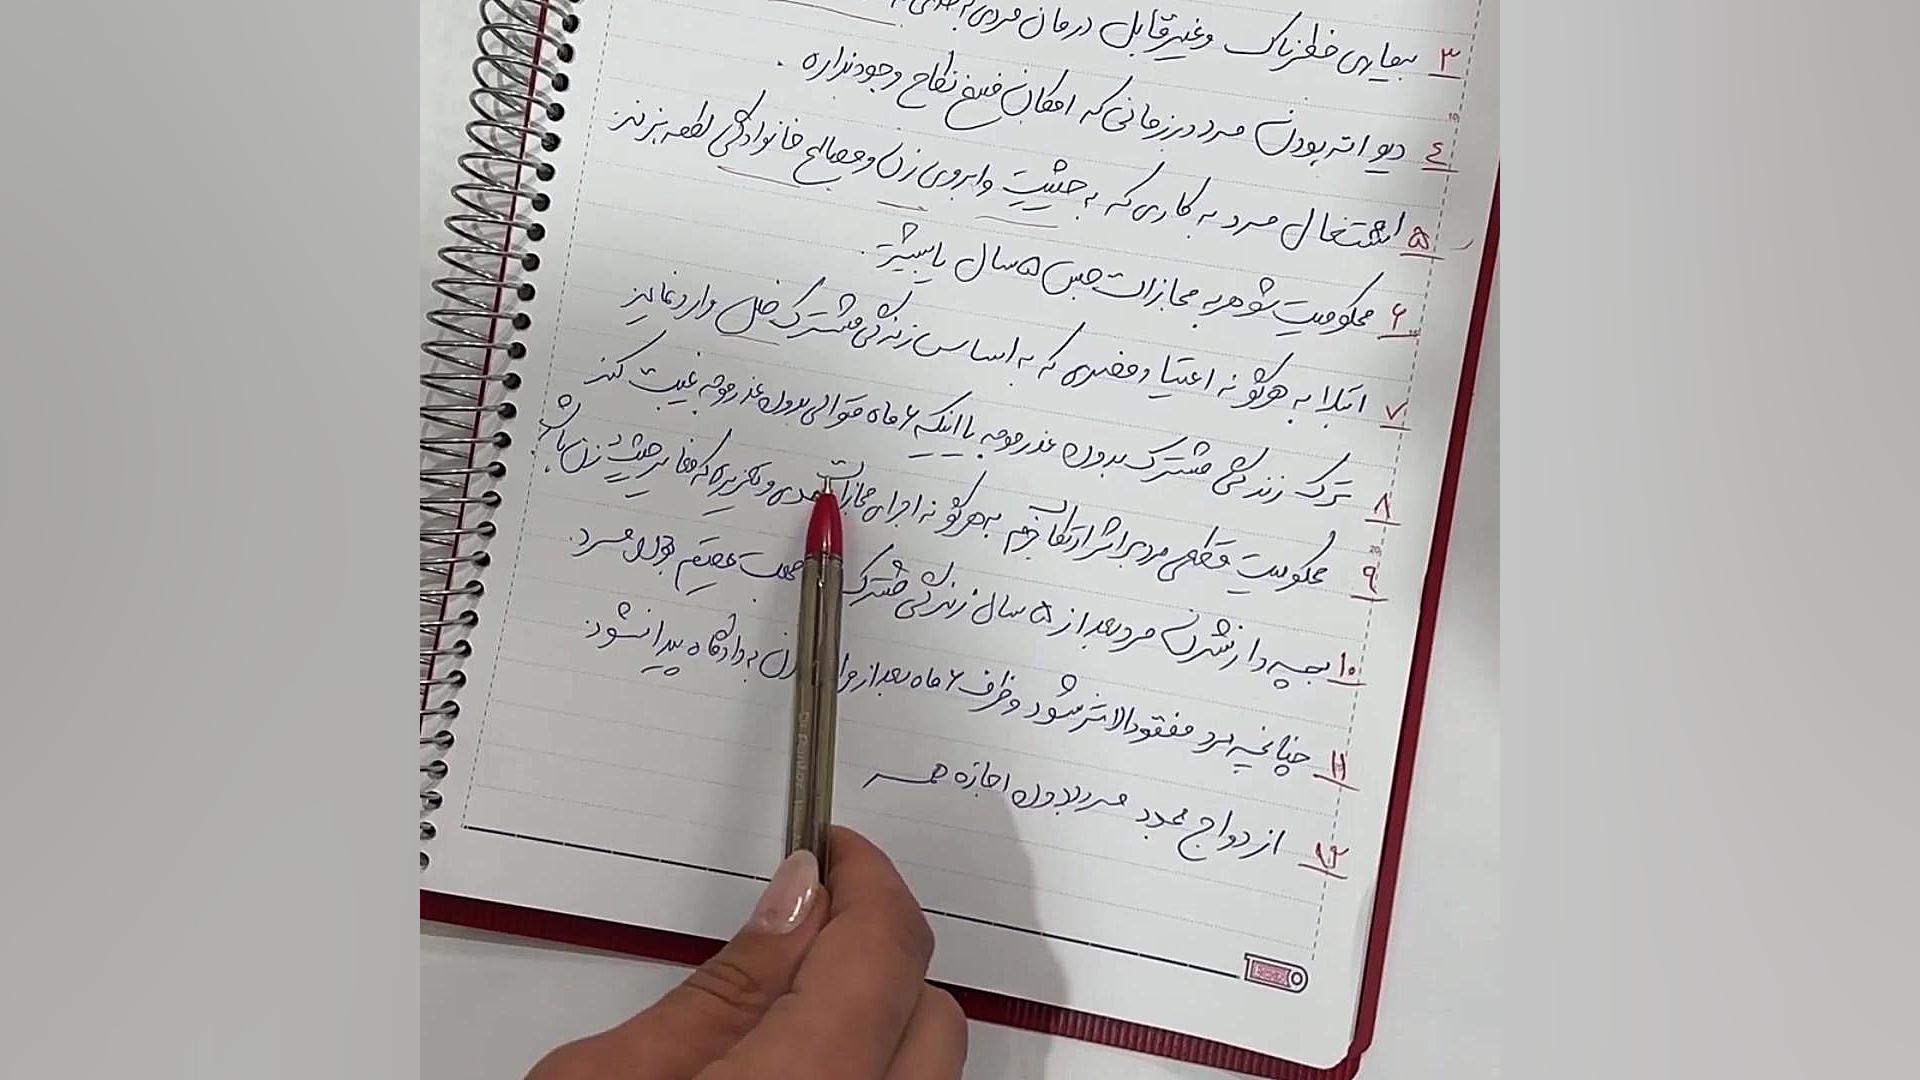 ۳ بیماری خطرناک و غیر قابل درمان مرد
۴ دیوانه بودن مرد در زمانی که امکان فسخ نکاح وجود نداره .
۵ اشتغال مرد به کاری که به حیثیت و ابروی زن و مصالح خانوادگی لطمه بزند
۶ محکومیت شوهر به مجازات حبس ۵ سال یا بیشتر .
۷ ابتلا به هرگونه اعتیاد مضری که به اساس زندگی مشترک خلل وارد نماید
۸ ترک زندگی مشترک بدون عذر موجه یا اینکه ۶ ماه متوالی بدون عذر موجه غیبت کند
۹ محکومیت قطعی مرد بر اثر ارتکاب جرم به هرگونه اجرای مجازات و تعزیری که مغایر حیثیت زن باشد
۱۰ بچه دار نشدن مرد بعد از ۵ سال زندگی مشترک عقیم بودن مرد .
۱۱ چنانچه مرد مفقودالاثر شود و ظرف ۶ ماه بعد از زن به دادگاه پیدا نشود
۱۲ ازدواج مجدد مرد بدون اجازه همسر